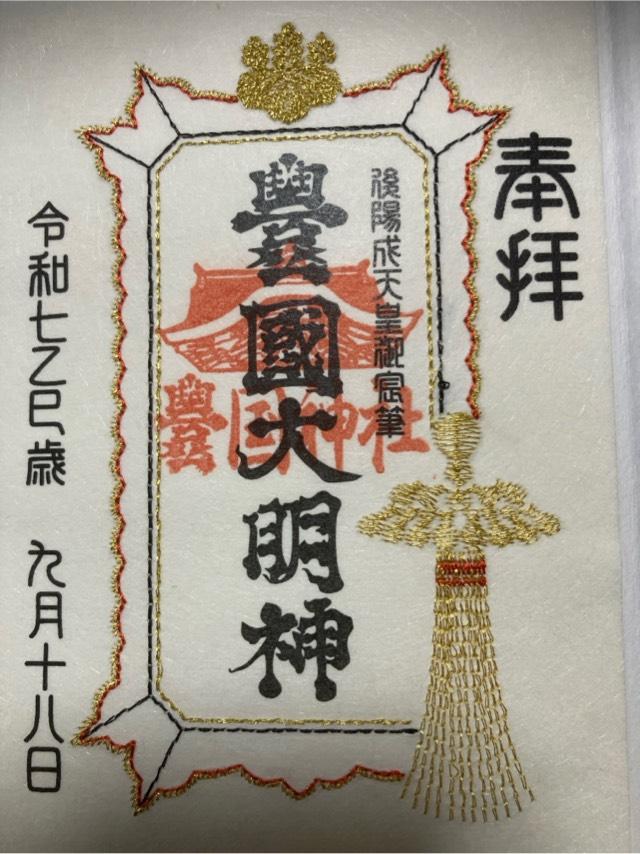 奉拝
後陽成天皇御宸筆
豐國大明神
豐国神社
令和七乙巳歳 九月十八日